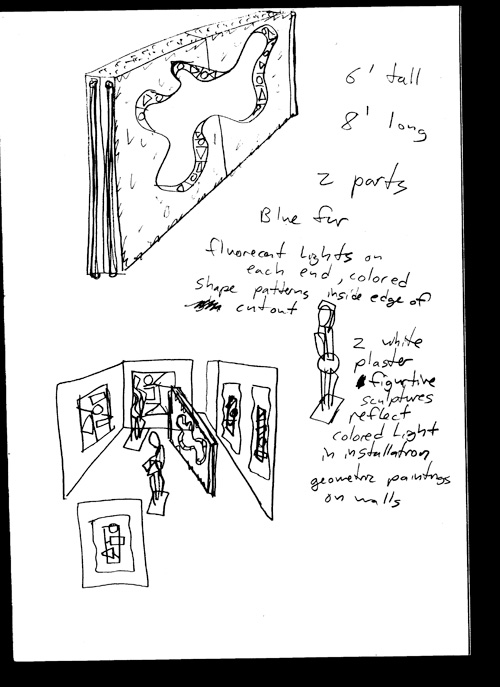 6' tall
8' long
2 parts
Blue fur
fluorecent Lights on
each end, colored
shape patterns inside edge of
cutout
2 white
plaster
figurtive
sculptures
reflect
colored Light
in installation
geometric paintings
on walls